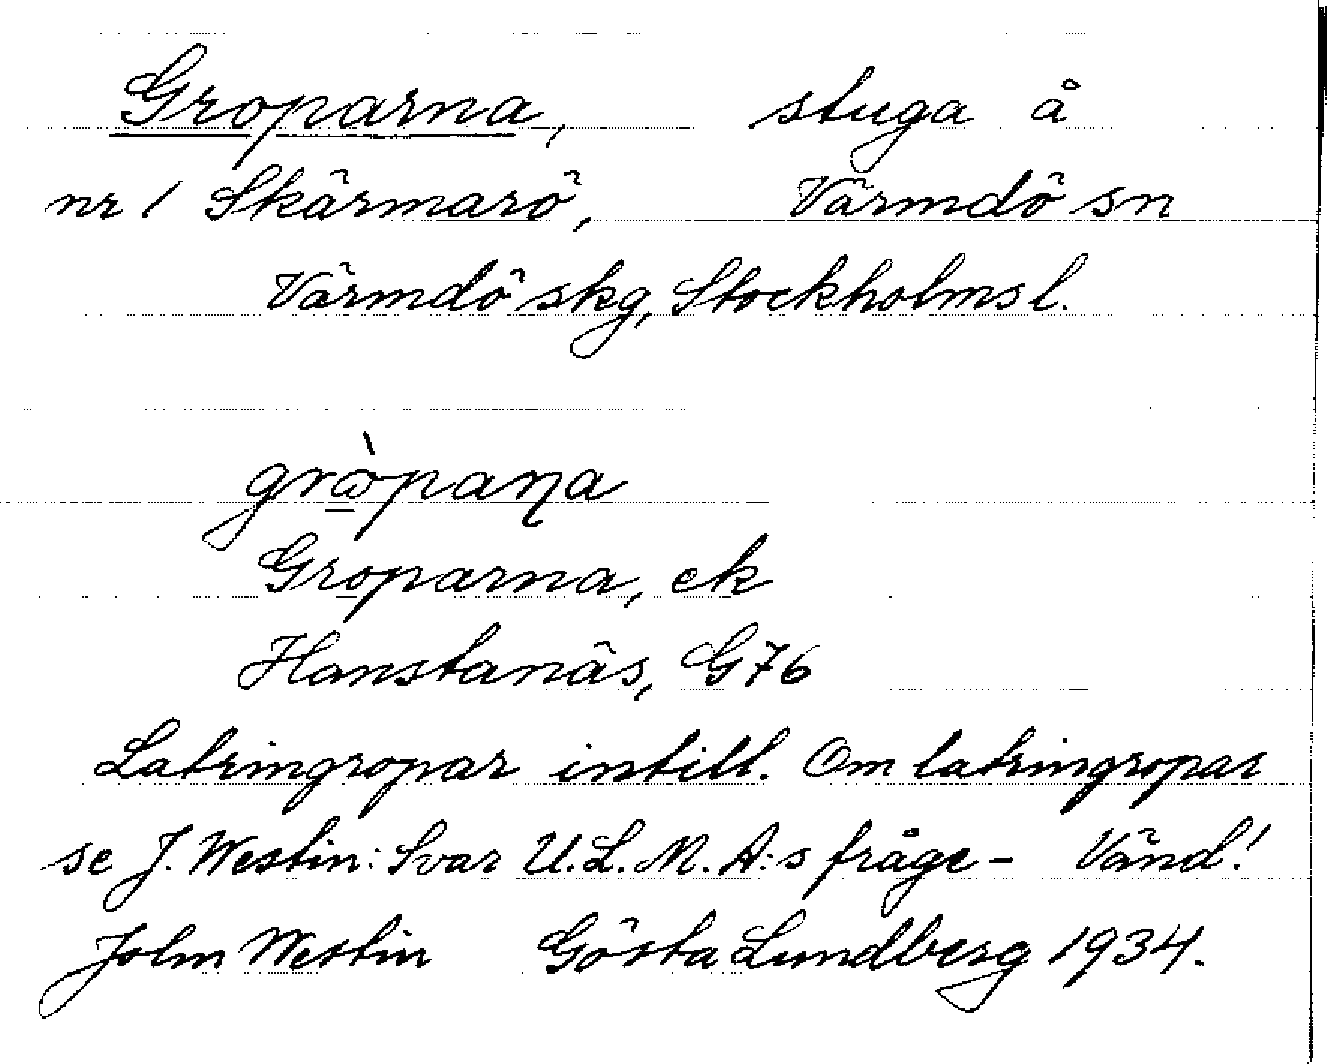 Groparna, stuga å
nr 1 Skärmarö, Värmdö sn
Värmdö skg, Stockholms l.
grò̱paɳa
Groparna, ek
Hanstanäs, G76
Latringropar intill. Om latringropar
se J. Westin: Svar U.L.M.A:s fråge- Vänd!
John Westin Gösta Lundberg 1934.